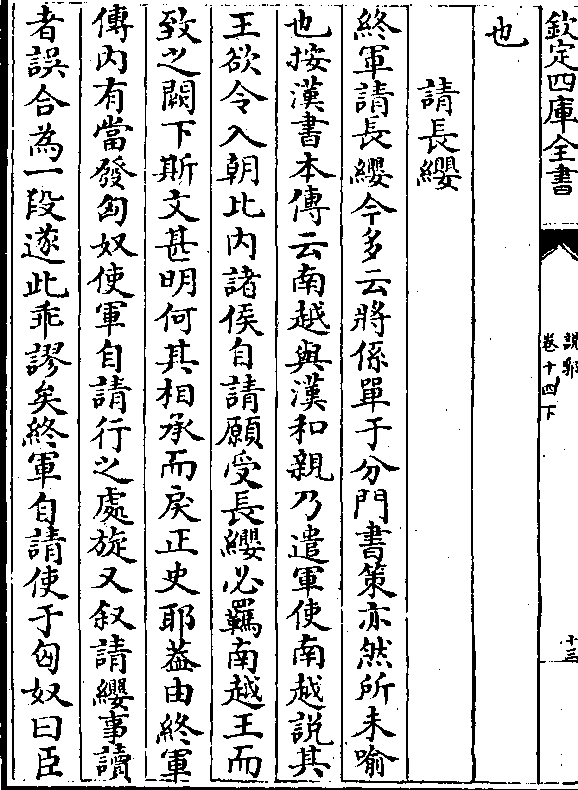 欽定四庫全書
說郛
卷十四下
十三
也
請長纓
終軍請長纓今多云將係單于分門書策亦然所未喻
也按漢書本傳云南越與漢和親乃遣軍使南越說其
王欲令入朝比內諸侯自請願受長纓必羈南越王而
致之闕下斯文甚明何其相承而戾正史耶葢由終軍
傳內有當發匈奴使軍自請行之處旋又叙請纓事讀
者誤合為一段遂此乖謬矣終軍自請使于匈奴曰臣